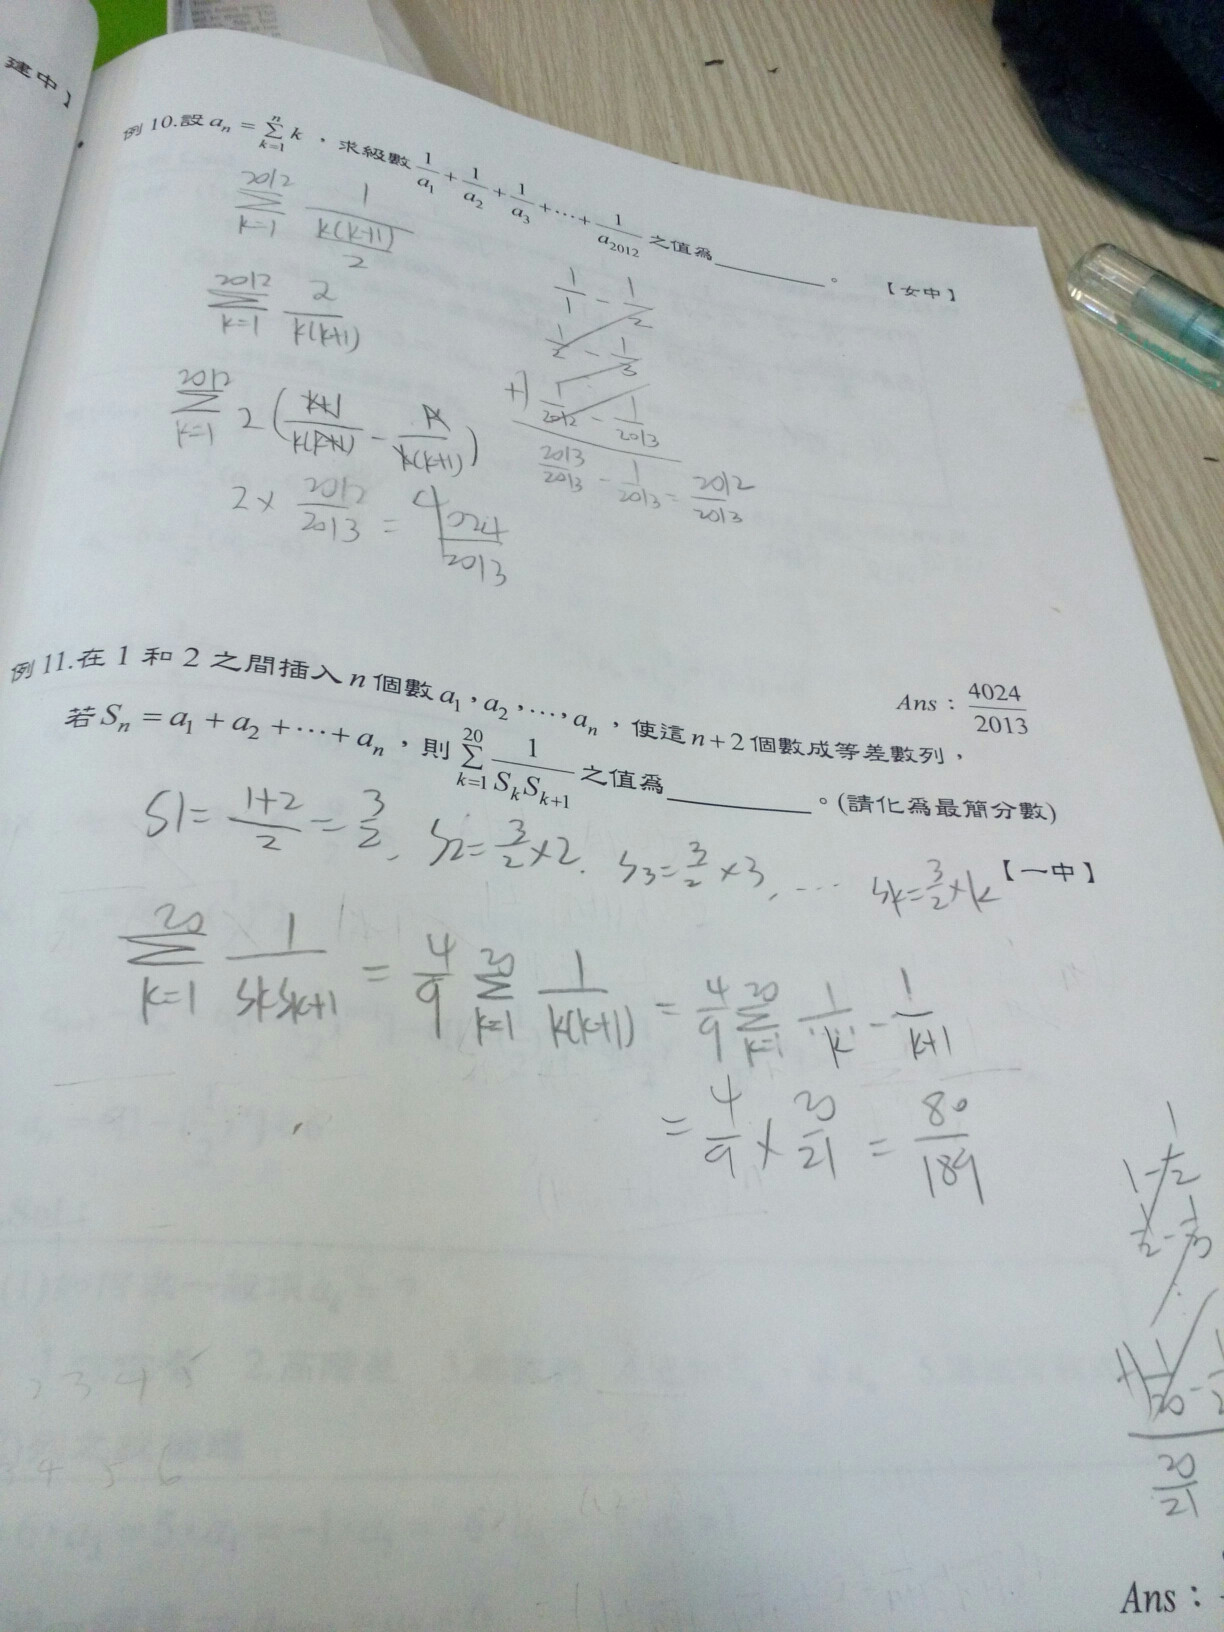 建中】
例 10.設 aₙ = ∑ₖ₌₁ⁿ k ，求級數 1/a₁ + 1/a₂ + 1/a₃ + ⋯ + 1/a₂₀₁₂ 之值為________。 【女中】
2012 ∑ k=1 1/(k(k+1)/2)
2012 ∑ k=1 2/(k(k+1))
2012 ∑ k=1 2((k+1)/(k(k+1)) - k/(k(k+1)))
2 × 2012/2013 = 4024/2013
1/1 - 1/2
1/2 - 1/3
+) 1/2012 - 1/2013
2013/2013 - 1/2013 = 2012/2013
Ans： 4024/2013
例 11.在 1 和 2 之間插入 n 個數 a₁，a₂，…，aₙ，使這 n+2 個數成等差數列，
若 Sₙ = a₁ + a₂ + ⋯ + aₙ，則 ∑ₖ₌₁²⁰ 1/(SₖSₖ₊₁) 之值為________。(請化為最簡分數)
【一中】
S1 = (1+2)/2 = 3/2 , S2 = 3/2 × 2 . S3 = 3/2 × 3 , ⋯ Sk = 3/2 × k
20 ∑ k=1 1/(SkSk+1) = 4/9 20 ∑ k=1 1/(k(k+1)) = 4/9 20 ∑ k=1 1/k - 1/(k+1)
= 4/9 × 20/21 = 80/189
1 - 1/2
1/2 - 1/3
+) 1/20 -
20/21
Ans：